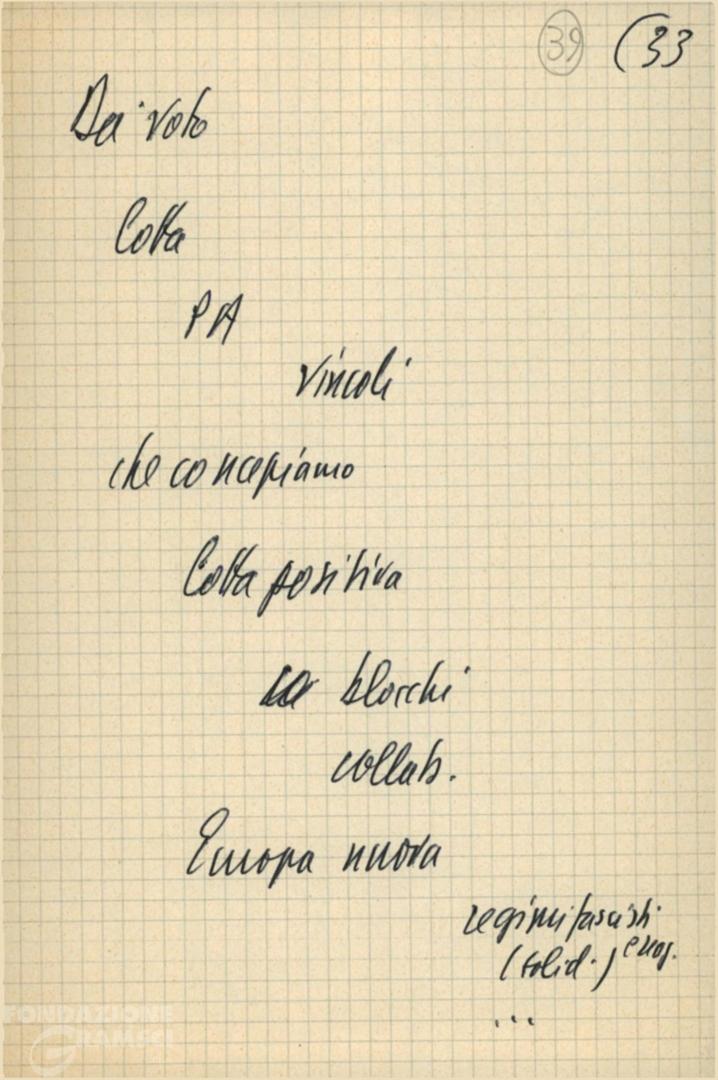 39 (33
Dei voto
Lotta
PA
vincoli
che concepiamo
Lotta positiva
blocchi
collab.
Europa nuova
regimi fascisti
(solid.)
...
FONDAZIONE
GRAMSCI